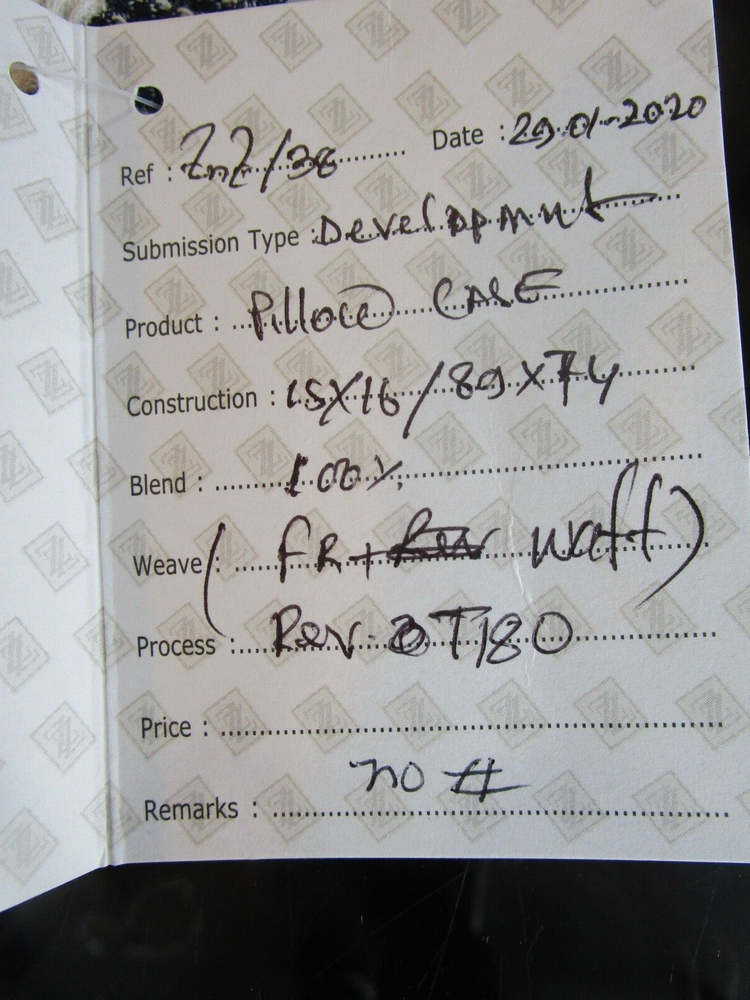 Ref : ZnZ/38 Date : 29.01-2020
Submission Type : Development
Product : Pillow CASE
Construction : 15X16/89X74
Blend : 100%
Weave : (FR + waff)
Process : Rev. T180
Price :
Remarks : no #